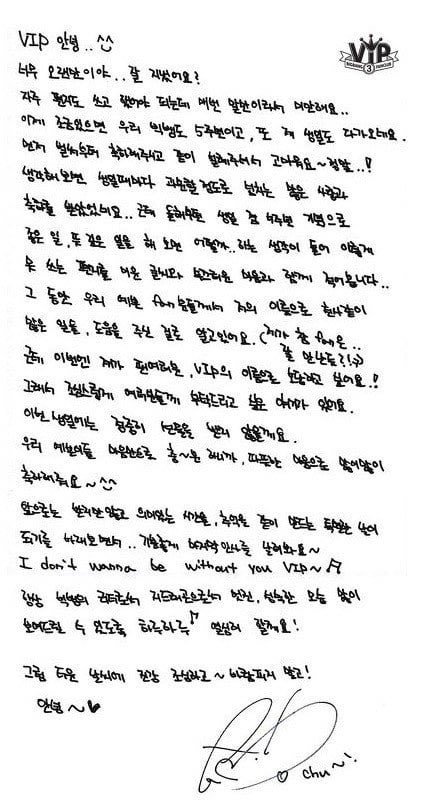 VIP 안녕.. ^^
VIP
BIGBANG 3 FANCLUB
너무 오랜만이야.. 잘 지냈어요?
자주 편지도 쓰고 했어야 되는데 매번 말만이라서 미안해요..
이게 조금있으면 우리 빅뱅도 5주년이고, 또 제 생일도 다가오네요.
먼저 벌써부터 축하해주시고 같이 설레주셔서 고마워요~ 정말..!!
생각해보면 생일때마다 과분할정도로 넘치는 많은 사랑과
축하를 받았었네요.. 근데 올해부턴 생일 겸 5주년 기념으로
좋은 일, 뜻 깊은 일을 해 보면 어떨까..하는 생각이 들어 이렇게
못 쓰는 편지를 미운 글씨와 부끄러운 마음과 함께 적어봅니다..
그 동안 우리 예쁜 fan분들께서 저의 이름으로 천사같이
많은 일들, 도움을 주신 걸로 알고있어요. (제가 참 fan은..
잘 만난듯?! :))
근데 이번엔 제가 편여러분, VIP의 이름으로 보답하고 싶어요!!
그래서 조심스럽게 여러분들께 부탁드리고 싶은 이야기가 있어요.
이번 생일에는 정중히 선물을 받지 않을게요.
우리 예쁜이들 마음만으로 충~분 하니까, 따뜻한 마음으로 많이많이
축하해줘요~ ^^
앞으로는 받지만 않고 의미있는 시간을, 추억을 같이 만드는 특별한 날이
되기를 바래보면서.. 기분좋게 마지막 인사를 날려봐요~
I don't wanna be without you VIP~♬
항상 빅뱅의 리더로서 지드래곤으로서 멋진, 성숙한 모습 많이
보여드릴 수 있도록 하루하루♪ 열심히 할게요!
그럼 더운 날씨에 건강 조심하고~ 바람피지 말고!
안녕~♥
G.D
♡ chu~!